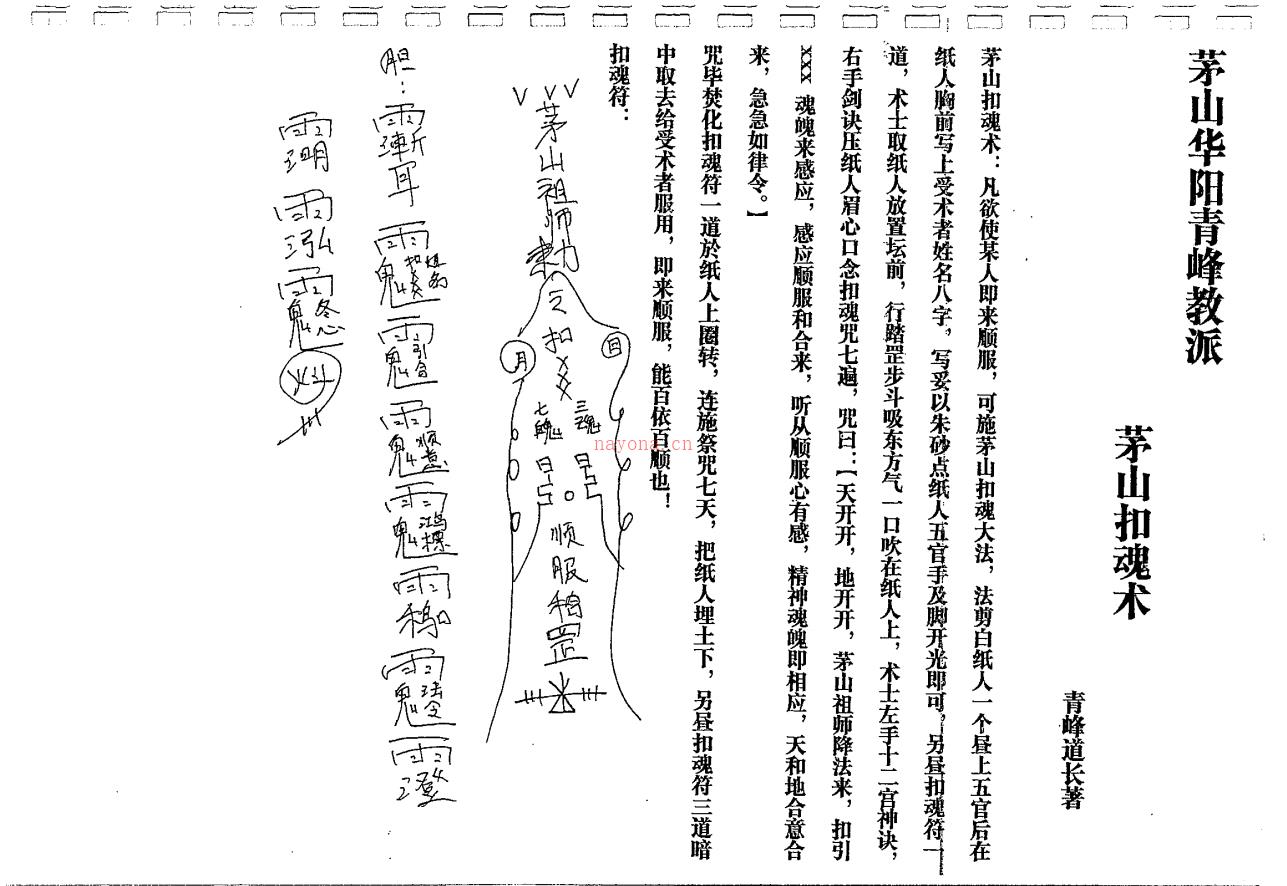 茅山华阳青峰教派
茅山扣魂术
青峰道长著
茅山扣魂术：凡欲使某人即来顺服，可施茅山扣魂大法，法剪白纸人一个昼上五官后在
纸人胸前写上受术者姓名八字，写妥以朱砂点纸人五官手及脚开光即可，另昼扣魂符一
道，术士取纸人放置坛前，行踏罡步斗吸东方气一口吹在纸人上，术士左手十二宫神诀，
右手剑诀压纸人眉心口念扣魂咒七遍，咒曰：【天开开，地开开，茅山祖师降法来，扣引
XXX 魂魄来感应，感应顺服和合来，听从顺服心有感，精神魂魄即相应，天和地合意合
来，急急如律令。】
咒毕焚化扣魂符一道於纸人上圈转，连施祭咒七天，把纸人埋土下，另昼扣魂符三道暗
中取去给受术者服用，即来顺服，能百依百顺也！
扣魂符：
茅山祖师勅
令扣XX
日
月
三魂
七魄
顺服
罡
胆：
nayona.cn